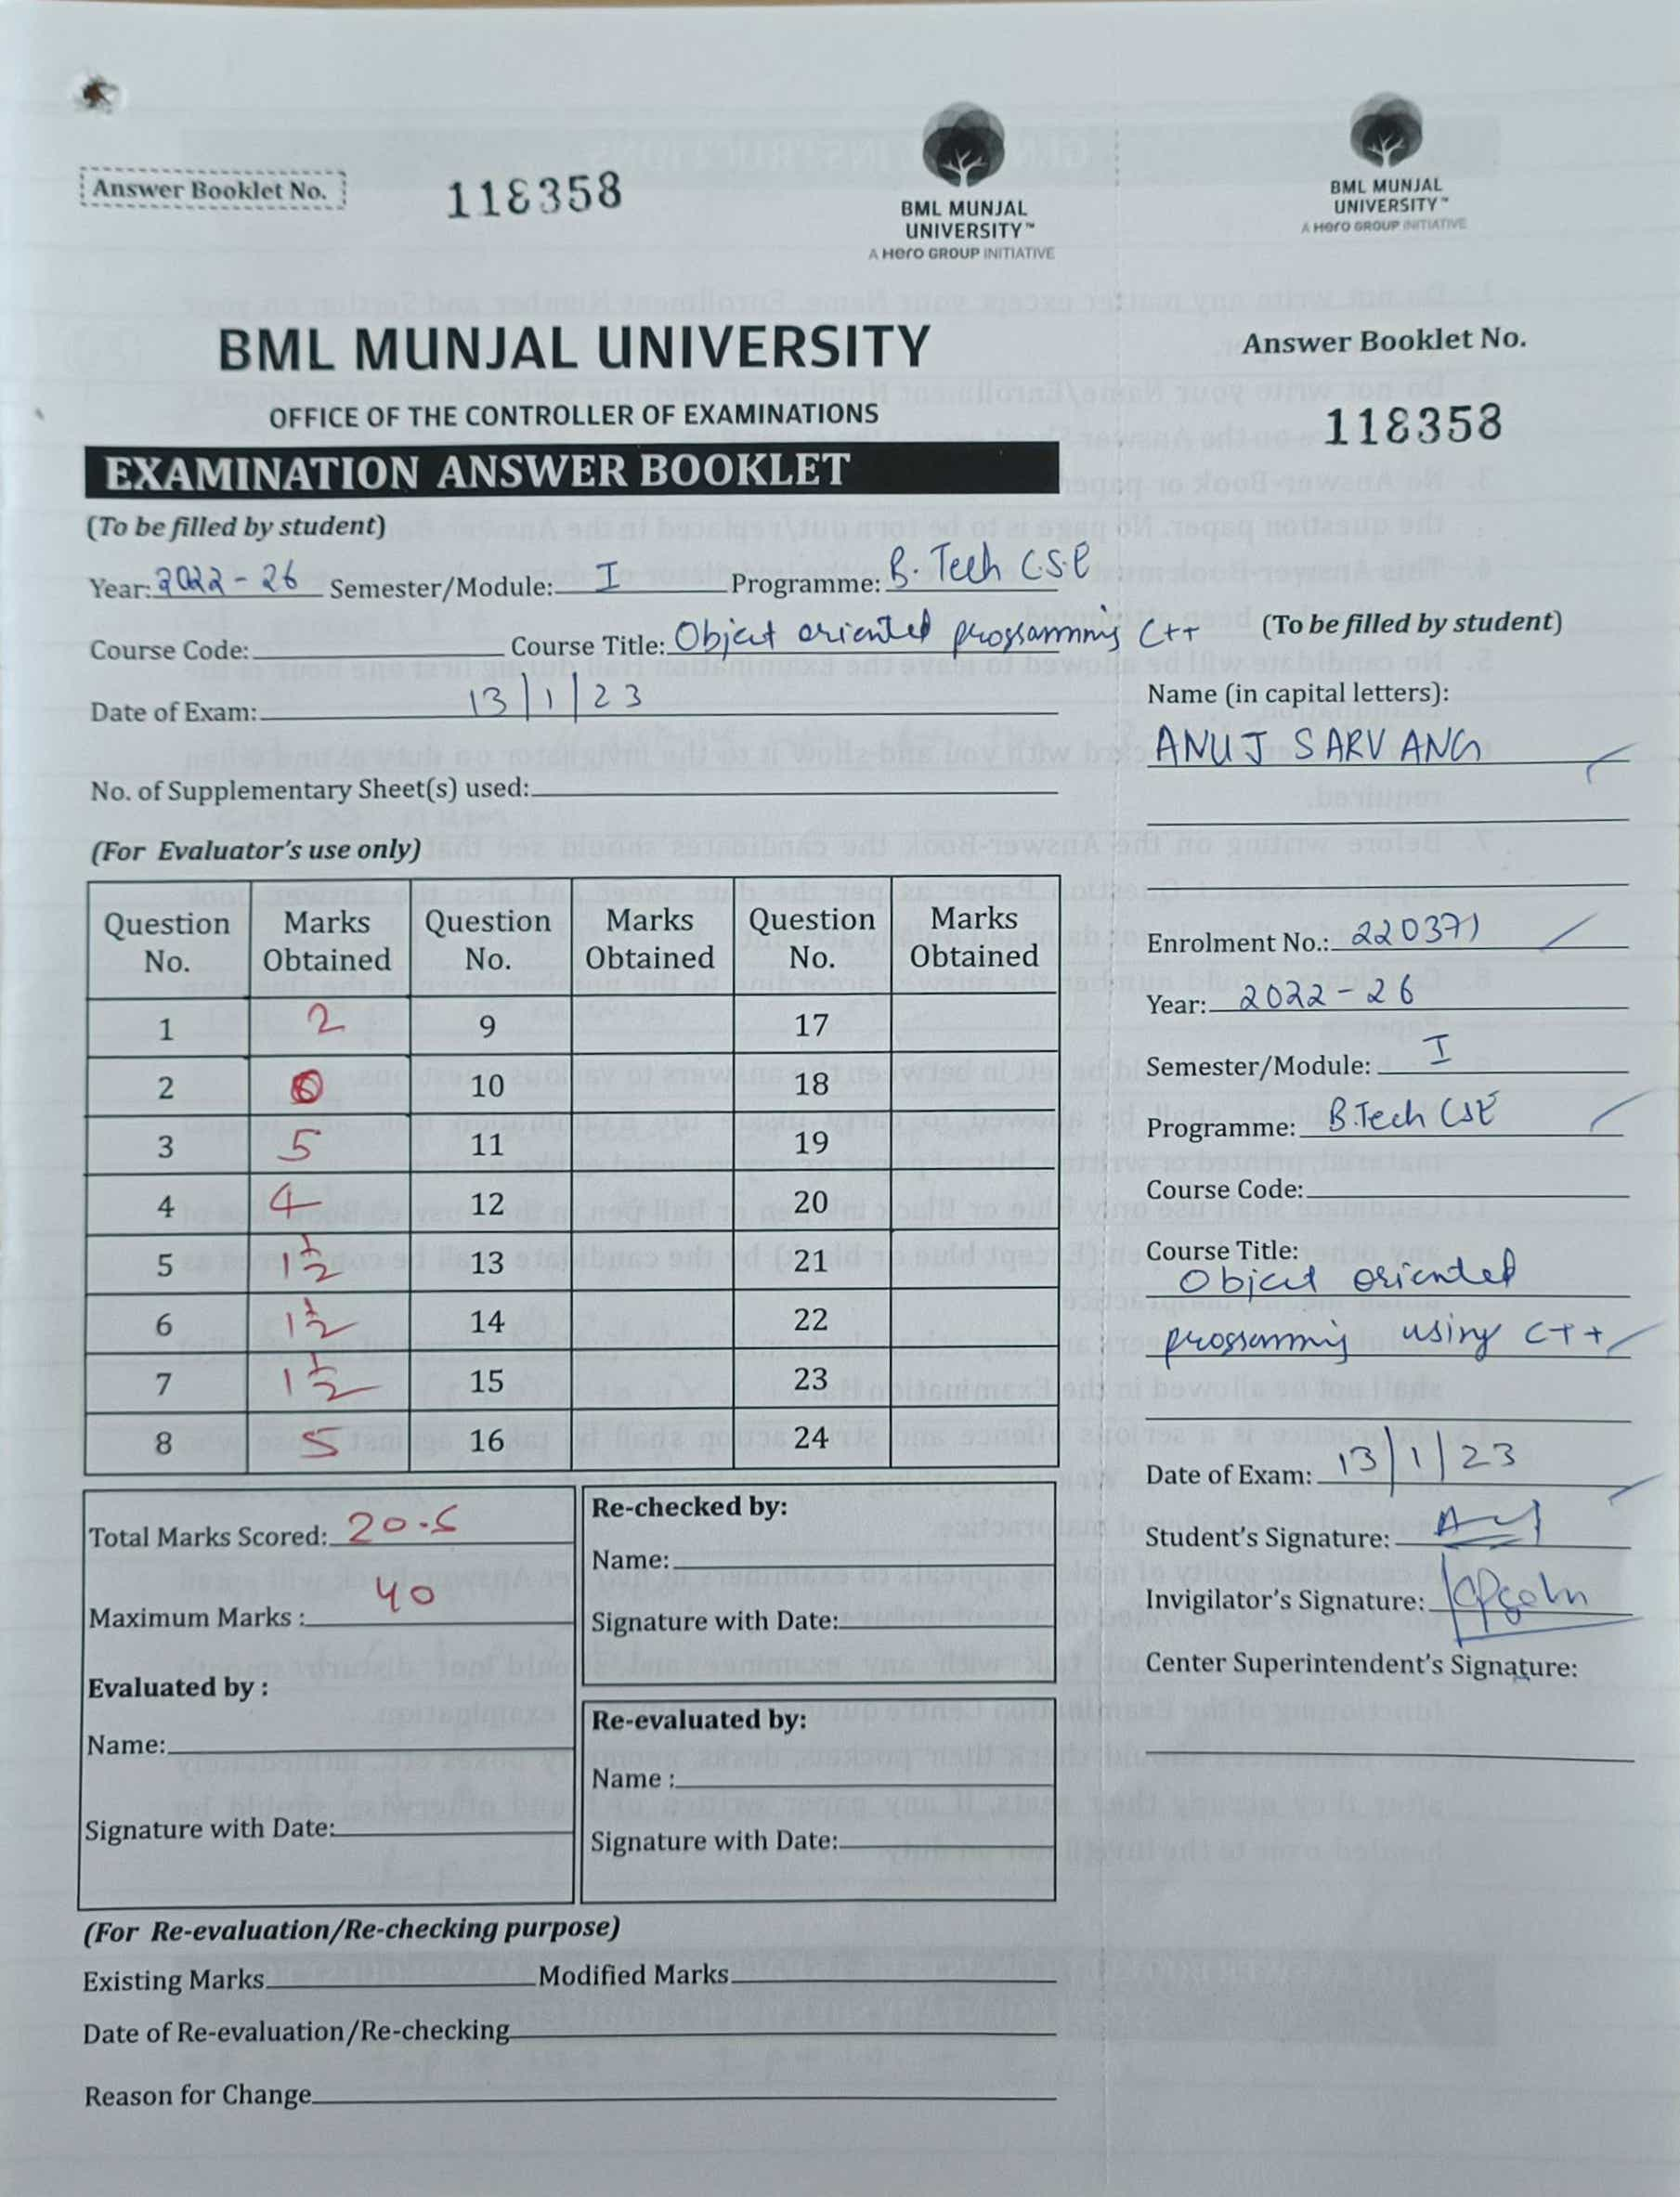 Answer Booklet No. 118358
BML MUNJAL
UNIVERSITY™
A Hero GROUP INITIATIVE
BML MUNJAL
UNIVERSITY™
A Hero GROUP INITIATIVE
BML MUNJAL UNIVERSITY
OFFICE OF THE CONTROLLER OF EXAMINATIONS
EXAMINATION ANSWER BOOKLET
(To be filled by student)
Year: 2022-26 Semester/Module: I Programme: B.Tech C.S.E
Course Code: Course Title: Object oriented progsamming C++
Date of Exam: 13|1|23
No. of Supplementary Sheet(s) used:
(For Evaluator's use only)
Question No. Marks Obtained Question No. Marks Obtained Question No. Marks Obtained
1 2 9 17
2 10 18
3 5 11 19
4 4 12 20
5 1½ 13 21
6 1½ 14 22
7 1½ 15 23
8 5 16 24
Total Marks Scored: 20.5
Maximum Marks : 40
Evaluated by :
Name:
Signature with Date:
Re-checked by:
Name:
Signature with Date:
Re-evaluated by:
Name :
Signature with Date:
(For Re-evaluation/Re-checking purpose)
Existing Marks Modified Marks
Date of Re-evaluation/Re-checking
Reason for Change
Answer Booklet No.
118358
(To be filled by student)
Name (in capital letters):
ANUJ SARVANG
Enrolment No.: 220371
Year: 2022-26
Semester/Module: I
Programme: B.Tech CSE
Course Code:
Course Title:
Object oriented
progsamming using C++
Date of Exam: 13|1|23
Student's Signature:
Invigilator's Signature:
Center Superintendent's Signature: